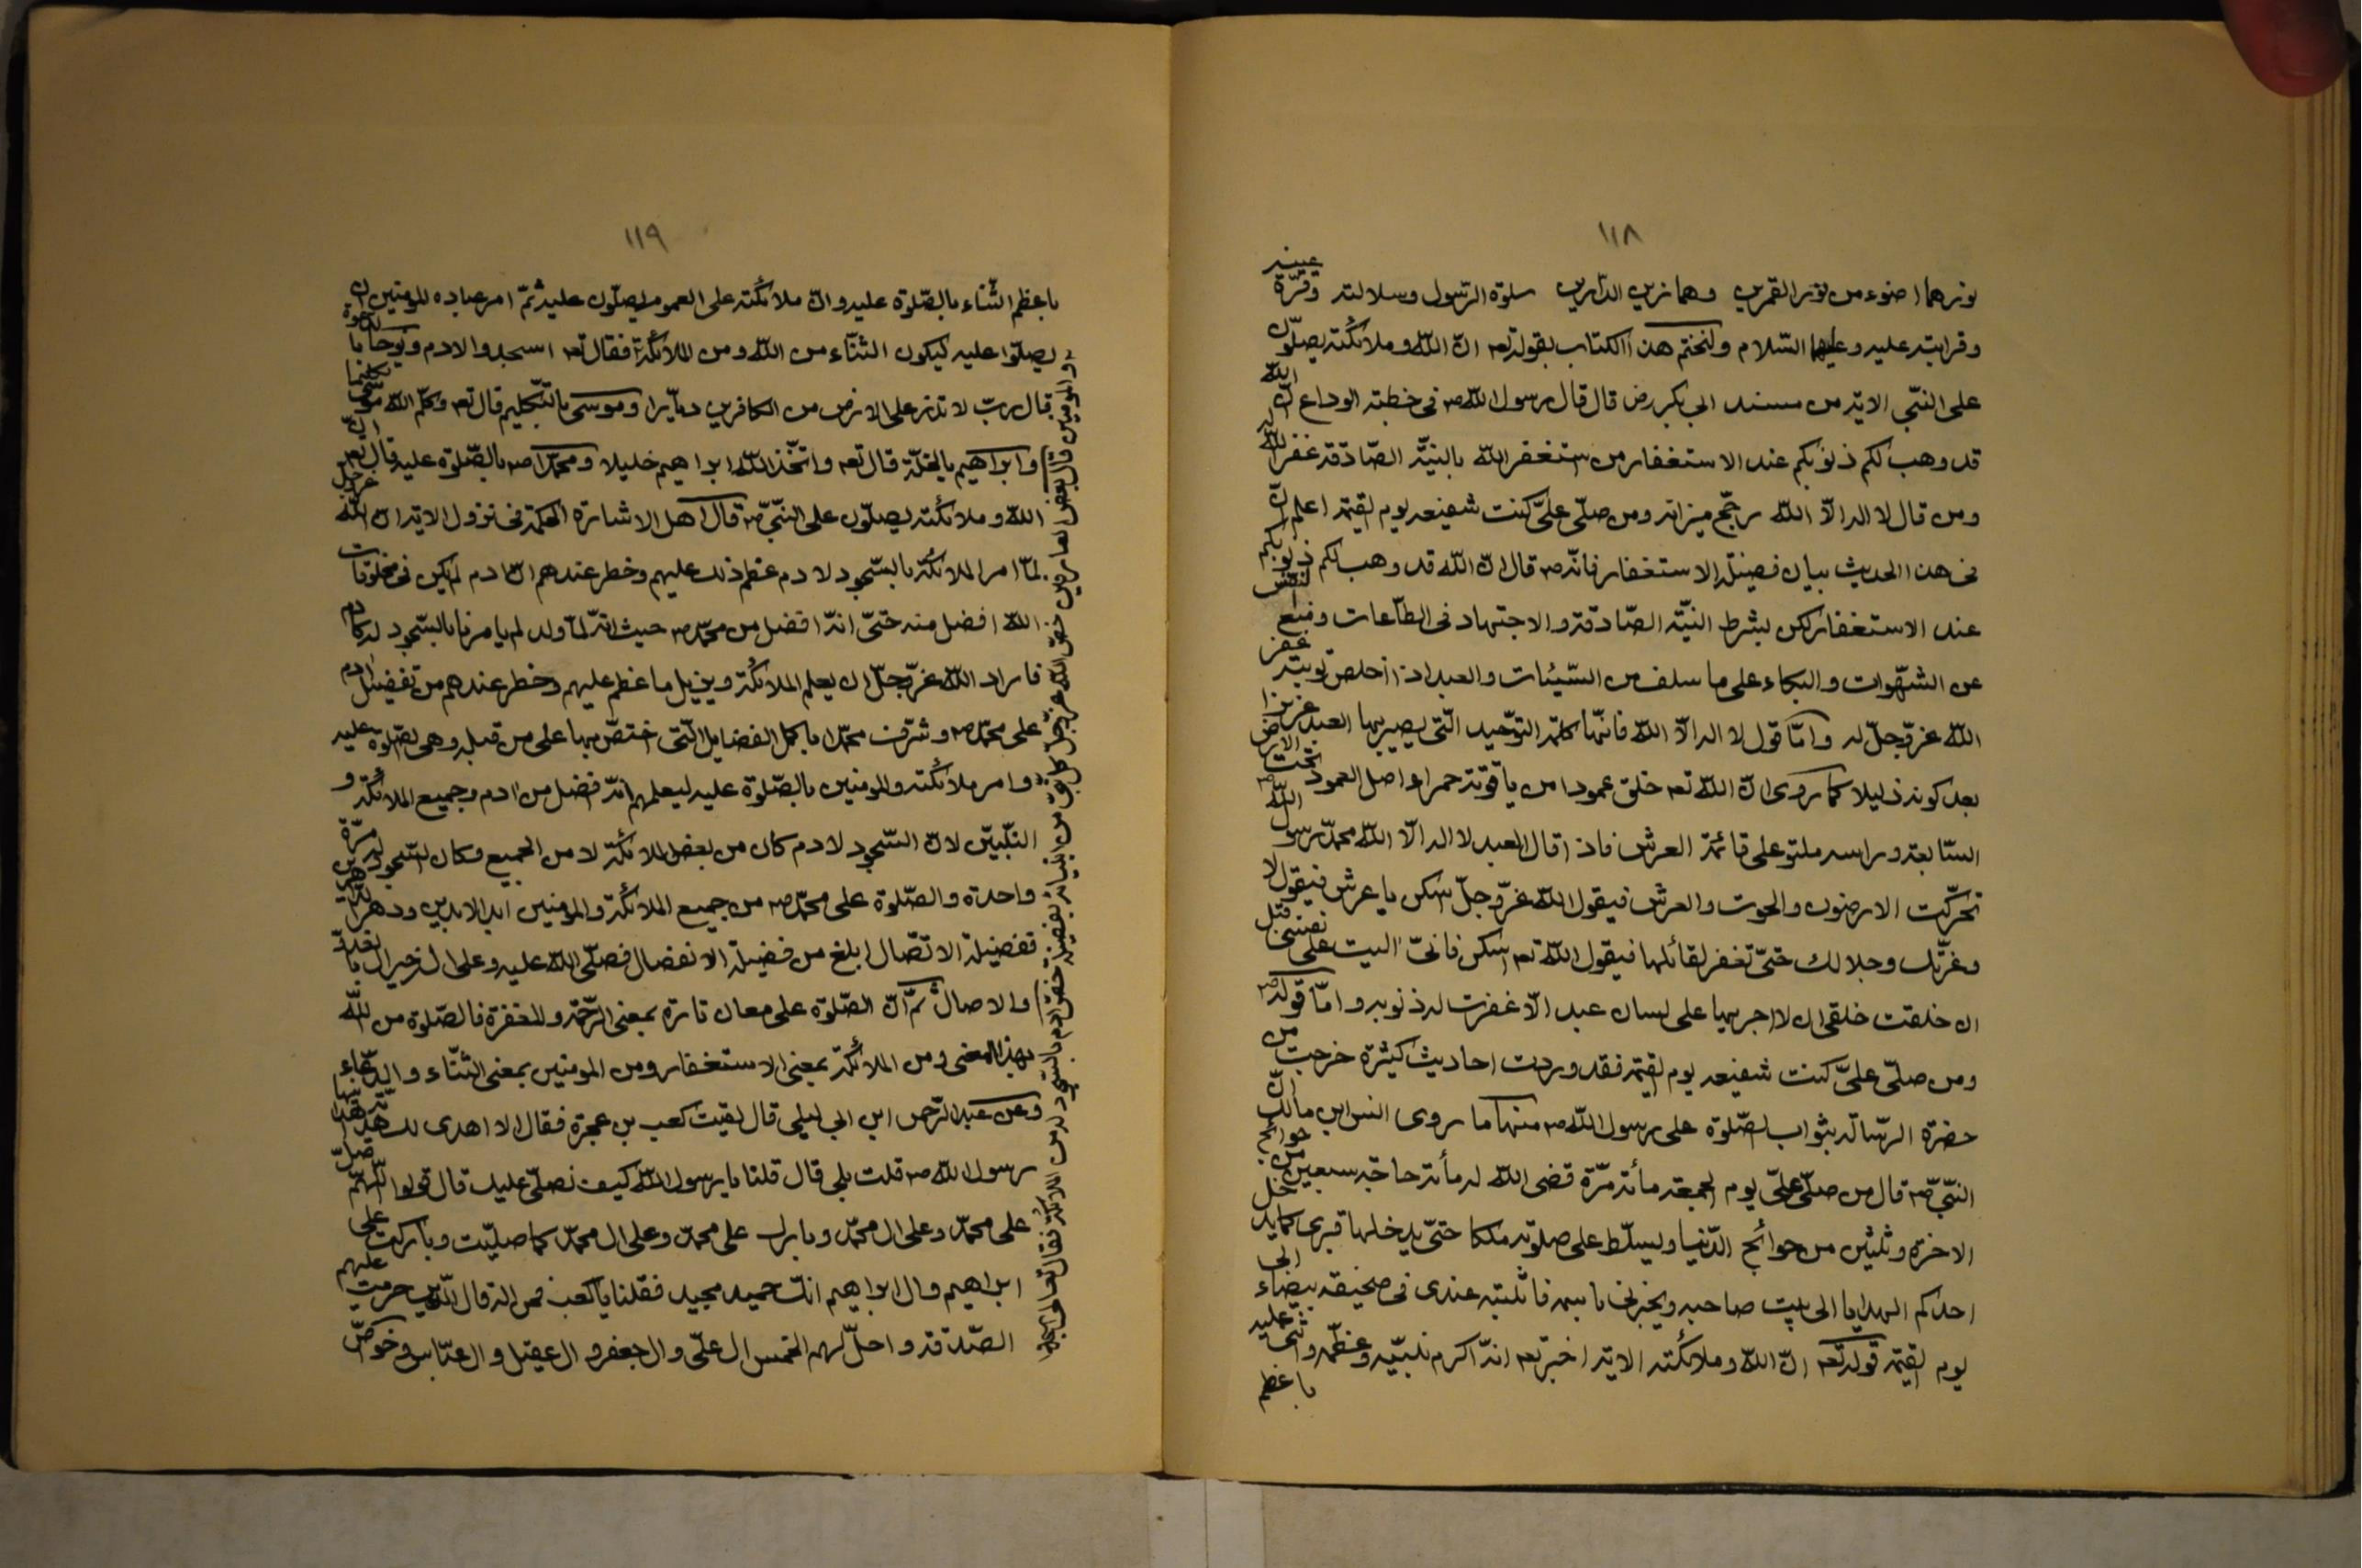 ١١٨
نورهما اضوء من نور القمرين وهما زين الدارين سلوة الرسول وسلالته وقرّة عينه
وقرابته عليه وعليهما السّلام ولنختم هذا الكتاب بقوله تعه انّ اللّه وملائكته يصلّون
على النبّي الاية من مسند ابي بكر رض قال قال رسول اللّه صه في خطبته الوداع انّ اللّه
قد وهب لكم ذنوبكم عند الاستغفار من استغفر اللّه بالنيّة الصّادقة غفر اللّه له
ومن قال لا اله الاّ اللّه رجّح ميزانه ومن صلّى علىّ كنت شفيعه يوم القيمة اعلم انّ
في هذا الحديث بيان فضيلة الاستغفار فانّه صه قال انّ اللّه قد وهب لكم ذنوبكم
عند الاستغفار لكن بشرط النيّة الصّادقة والاجتهاد في الطّاعات ومنع النفس
عن الشهوات والبكاء على ما سلف من السّيئات والعبد اذا اخلص توبته غفر
اللّه عزّ وجلّ له وامّا قول لا اله الاّ اللّه فانّها كلمة التوحيد الّتى يصير بها العبد عزيزا
بعد كونه ذليلا كما روى انّ اللّه تعه خلق عمودا من ياقوتة حمراء واصل العمود تحت الارض
السّابعة وراسه ملتو على قائمة العرش فاذا قال العبد لا اله الاّ اللّه محمّد رسول اللّه صه
تحرّكت الارضون والحوت والعرش فيقول اللّه عزّ وجلّ اسكن يا عرش فيقول لا
وعزّتك وجلالك حتّى تغفر لقائلها فيقول اللّه تعه اسكن فانىّ اليت على نفسى قبل
ان خلقت خلقى ان لا اجريها على لسان عبد الاّ غفرت له ذنوبه وامّا قوله صه
ومن صلّى علىّ كنت شفيعه يوم القيمة فقد وردت احاديث كثيرة خرجت من
حضرة الرّسالة بثواب الصّلوة على رسول اللّه صه منها ما روى انس ابن مالك انّ
النبّى صه قال من صلّى علىّ يوم الجمعة مأئة مرّة قضى اللّه له مأئة حاجة سبعين من حوائج
الاخرة وثلثين من حوائج الدّنيا ويسلّط على صلوته ملكا حتّى يدخلها قبرى كما يدخل
احدكم الهدايا الى بيت صاحبه ويخبرنى باسمه فاثبته عندى في صحيفة بيضاء الى
يوم القيمة قوله تعه انّ اللّه وملائكته الاية اخبر تعه انّه اكرم نبيّه وعظّمه واثنى عليه
باعظم
١١٩
باعظم الثّناء بالصّلوة عليه وانّ ملائكته على العموم يصلّون عليه ثمّ امر عباده المومنين ان
يصلّوا عليه ليكون الثنّاء من اللّه ومن الملائكة فقال تعه اسجدوا لادم ونوحا با لدعوة
قال ربّ لا تذر على الارض من الكافرين ديّارا وموسى بالتّكليم قال تعه وكلّم اللّه موسى تكليما
وابراهيم بالخلّة قال تعه واتّخذ اللّه ابراهيم خليلا ومحمّدا صه بالصّلوة عليه قال تعه انّ
اللّه وملائكته يصلّون على النبّىّ صه قال اهل الاشارة الحكمة في نزول الاية انّ اللّه عزّ وجلّ
لمّا امر الملائكة بالسّجود لادم عظم ذلك عليهم وخطر عندهم انّ ادم لم يكن في مخلوقات
اللّه افضل منه حتّى انّه افضل من محمّد صه حيث انّه لمّا ولد لم يامرنا بالسّجود له كادم
فاراد اللّه عزّ وجلّ ان يعلم الملائكة ويزيل ما عظم عليهم وخطر عندهم من تفضيل ادم
على محمّد صه وشرّف محمّدا باكمل الفضايل الّتى اختصّ بها على من قبله وهي الصّلوة عليه
وامر ملائكته والمومنين بالصّلوة عليه ليعلمهم انّه افضل من ادم وجميع الملائكة و
النبّيّين لانّ السّجود لادم كان من بعض الملائكة لا من الجميع وكان السّجود له مرّة
واحدة والصّلوة على محمّد صه من جميع الملائكة والمومنين ابد الابدين ودهر الداهرين
ففضيلة الاتّصال ابلغ من فضيلة الانفصال فصلّى اللّه عليه وعلى ال خير ال بالغدوّ
والاصال ثمّ انّ الصّلوة على معان تارة بمعنى الرّحمة والمغفرة فالصّلوة من اللّه
بهذا المعنى ومن الملائكة بمعنى الاستغفار ومن المومنين بمعنى الثّناء والدّعاء
وعن عبد الرّحمن ابن ابي ليلى قال لقيت كعب بن عجرة فقال الا اهدى لك هدية
رسول اللّه صه قلت بلى قال قلنا يا رسول اللّه كيف نصلّى عليك قال قولوا اللّهمّ صلّ
على محمّد وعلى ال محمّد وبارك على محمّد وعلى ال محمّد كما صلّيت وباركت على
ابراهيم وال ابراهيم انك حميد مجيد فقلنا يا كعب فمن اله قال الّذين حرمت عليهم
الصّدقة واحلّ لهم الخمس ال علّى وال جعفر وال عقيل وال عبّاس وخواصّ
والمومنين قال بعض العارفين خصّ اللّه عزّ وجلّ كلّ من انبيائه بفضيلة خصّ ادم بالسّجود له من الملائكة فقال تعالى اسجدوا